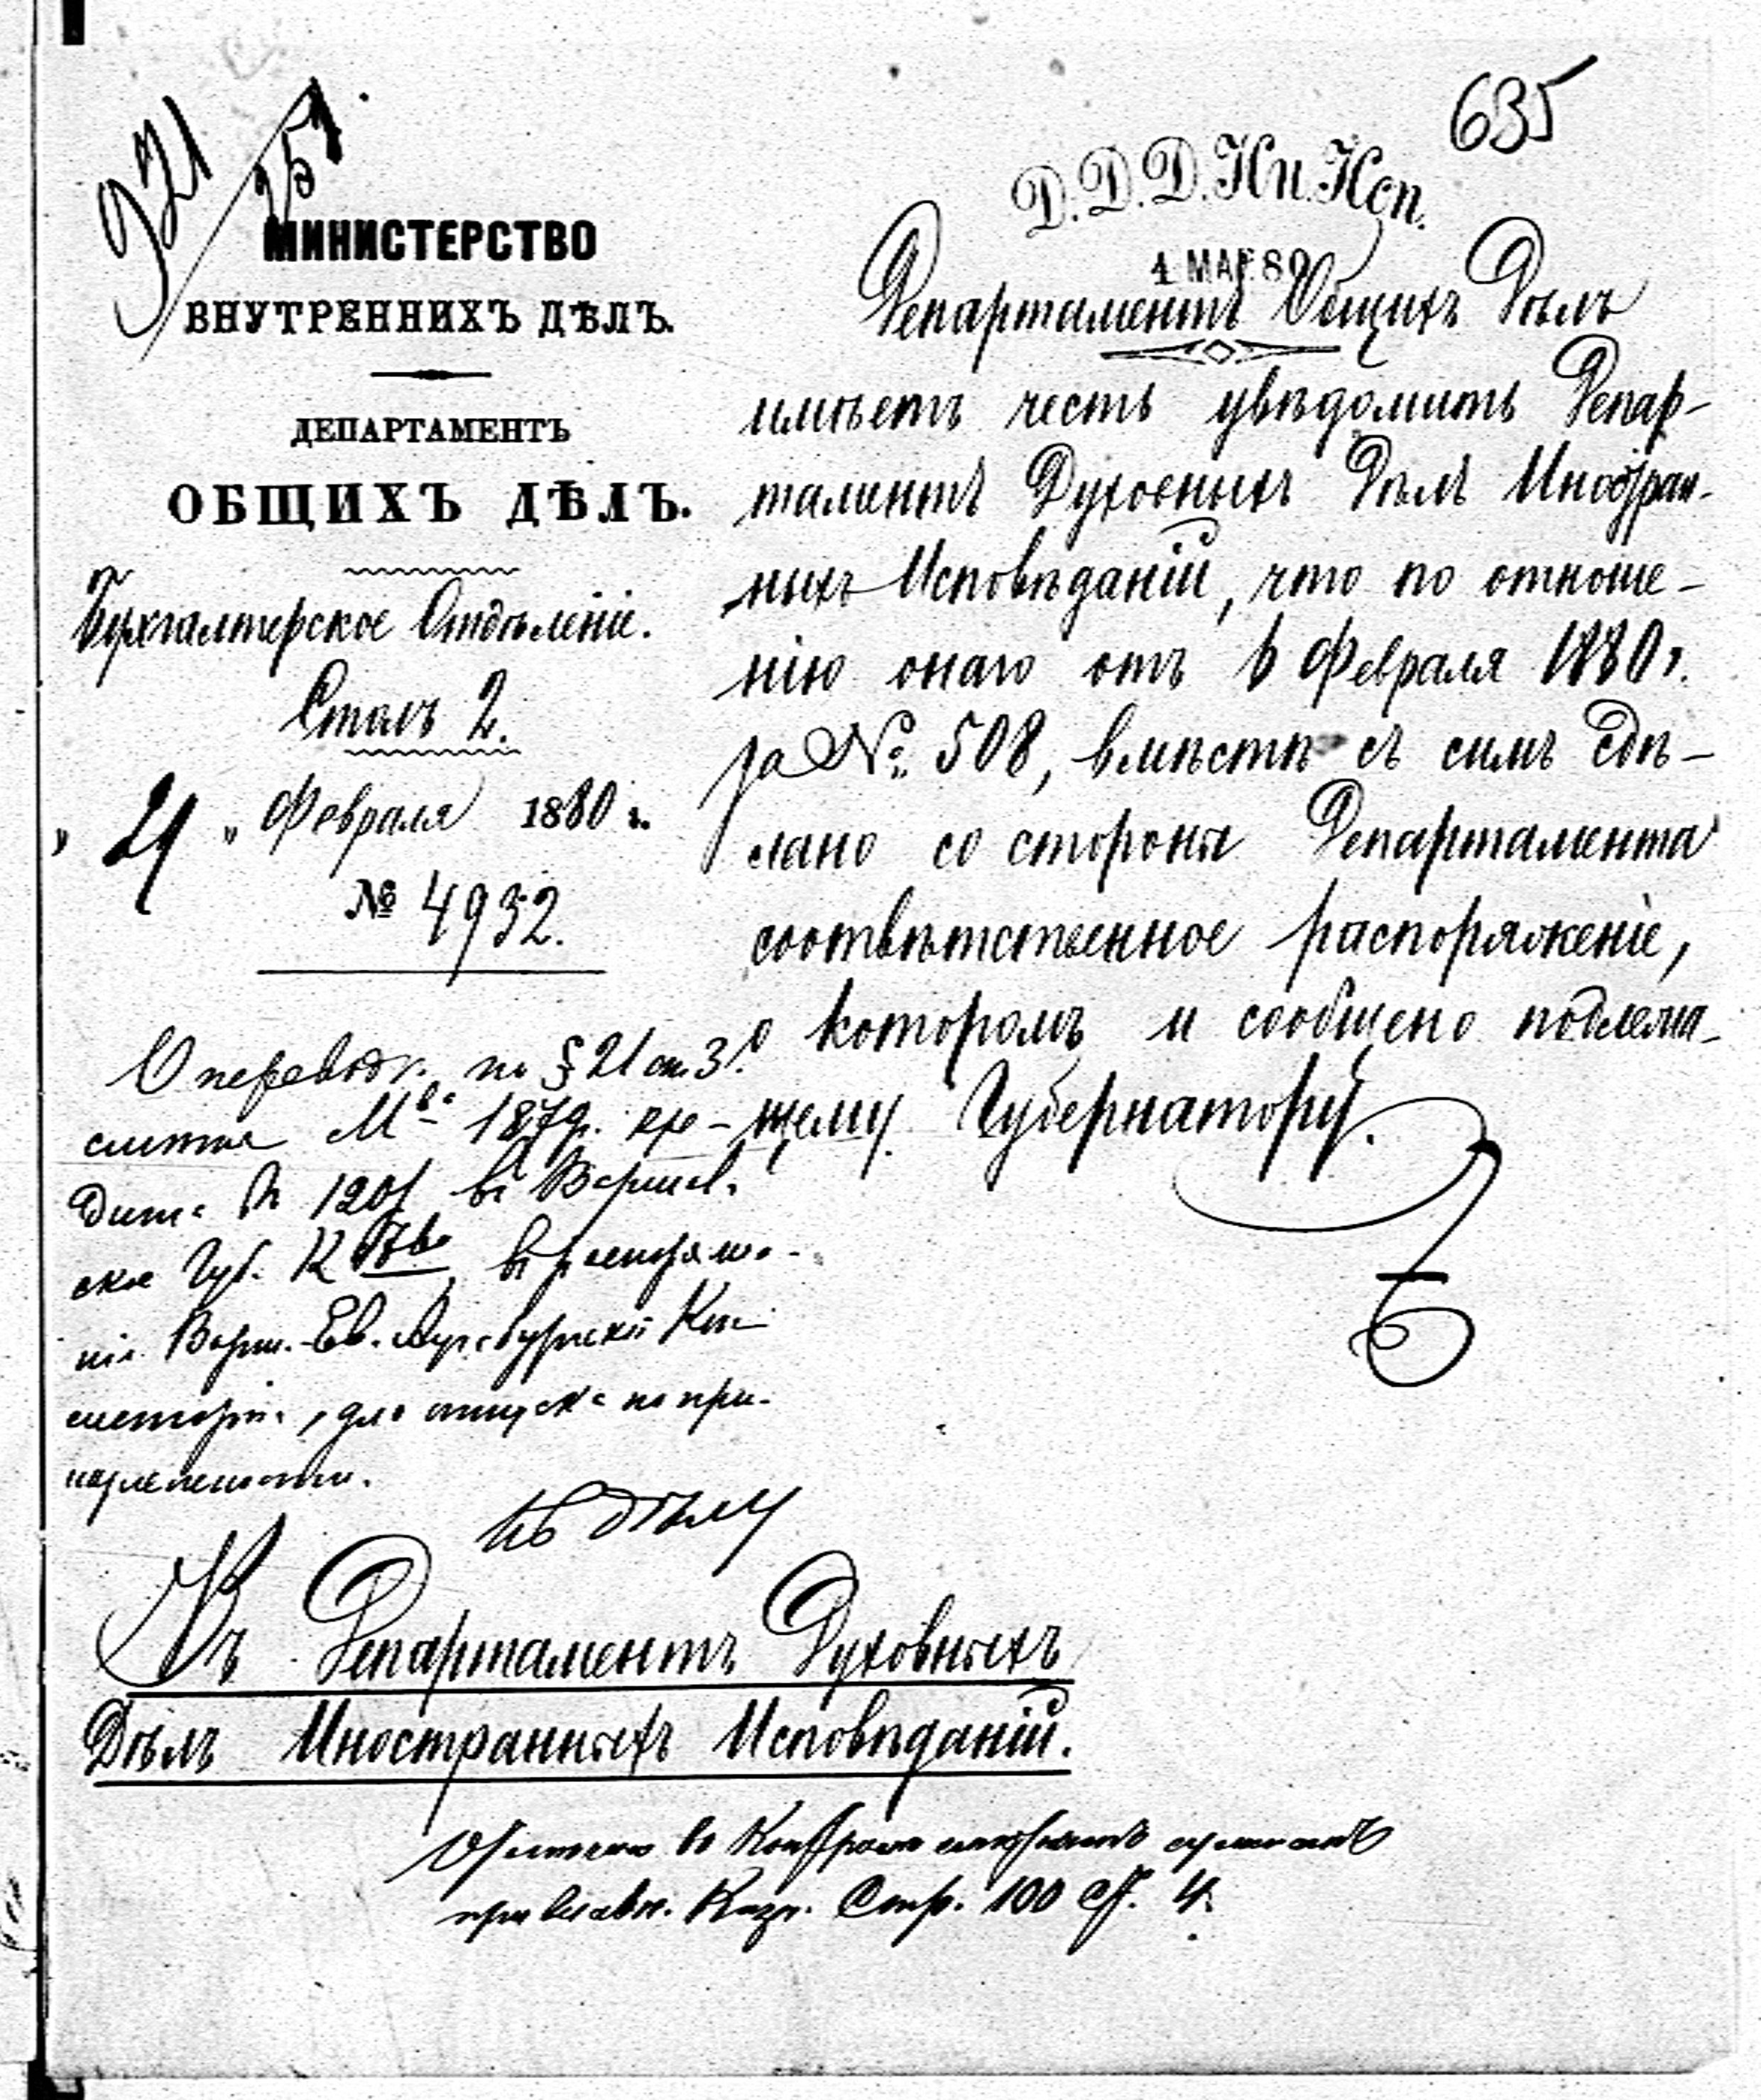 921
635
Д. Д. Д. Ин. Исп.
4 МАР. 80
МИНИСТЕРСТВО
ВНУТРЕННИХЪ ДѢЛЪ.
ДЕПАРТАМЕНТЪ
ОБЩИХЪ ДѢЛЪ.
Бухгалтерское Отдѣленіе.
Столъ 2.
„ 21 „ Февраля 1880 г.
№ 4932.
Департаментъ Общихъ Дѣлъ
имѣетъ честь увѣдомить Депар-
таментъ Духовныхъ Дѣлъ Иностран-
ныхъ Исповѣданій, что по отноше-
нію онаго отъ 6 Февраля 1880 г.
за № 508, вмѣстѣ съ симъ сдѣ-
лано со стороны Департамента
соотвѣтственное распоряженіе,
о которомъ и сообщено подлежа-
щему Губернатору.
О переводѣ по § 21 ст. 3
смѣты М-ва 1879 г. кре-
дита въ 120 въ Варшав-
ское Губ. К-во, въ распоряже-
ніе Варш. Ев. Аугсбургской Кон-
систоріи, для отпуска по при-
надлежности.
Къ дѣлу
Въ Департаментъ Духовныхъ
Дѣлъ Иностранныхъ Исповѣданій.
Отмѣчено въ
Казн. Стр. 100 ст. 4.